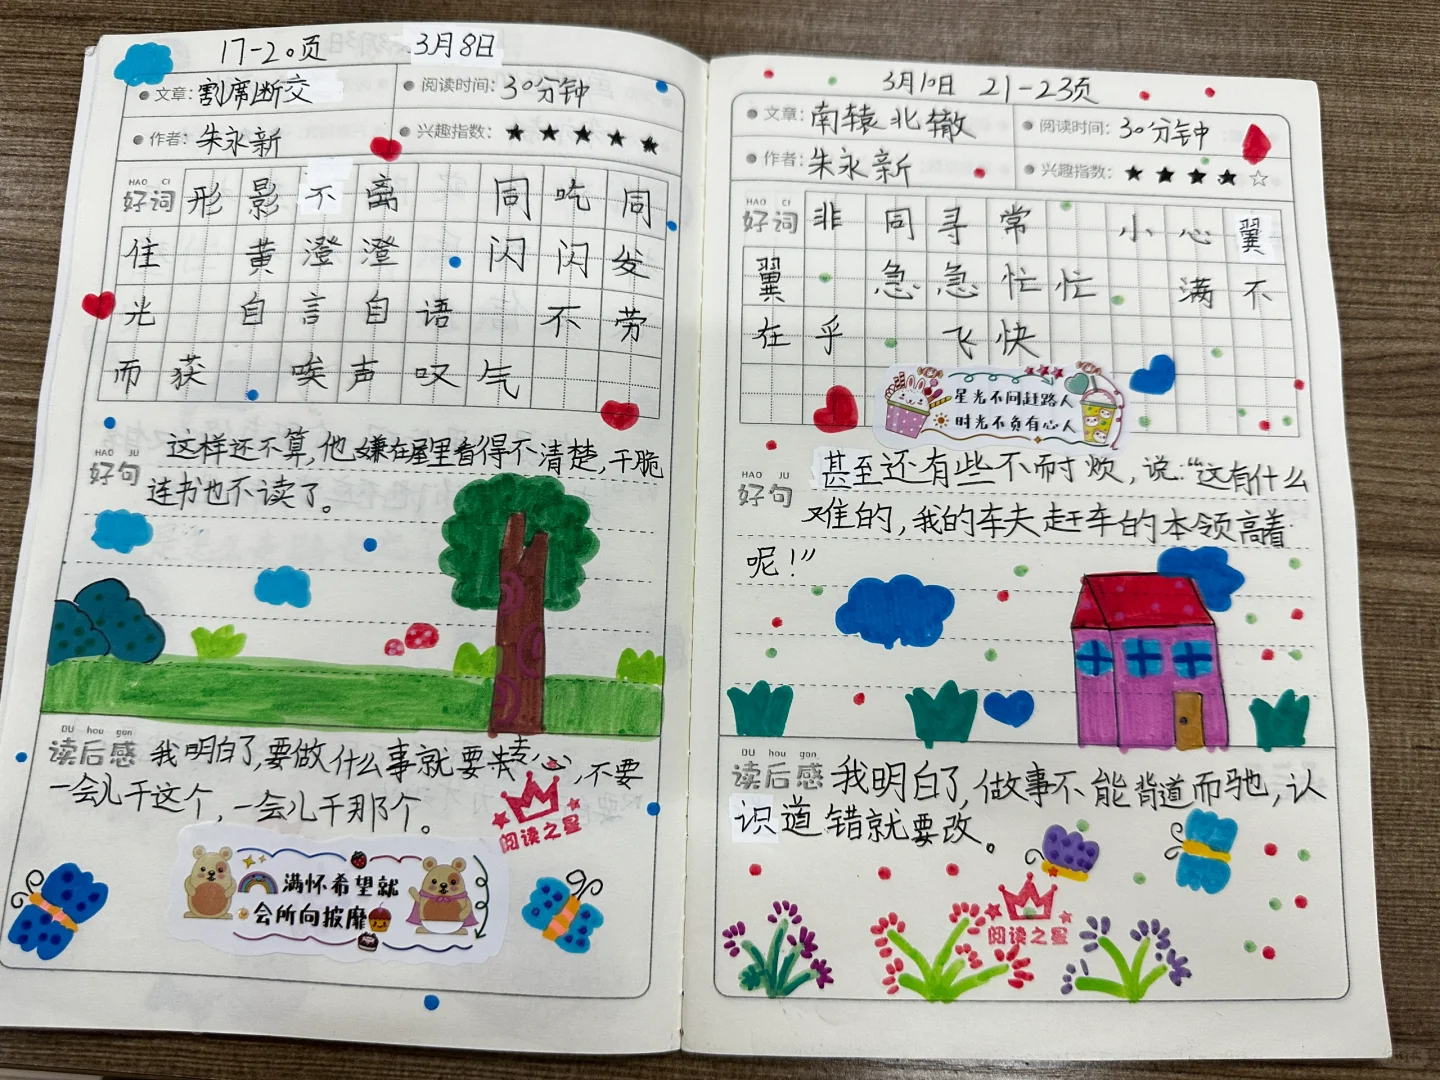 17-20页 3月8日
文章：割席断交 阅读时间：30分钟
作者：朱永新 兴趣指数：★★★★★
HAO CI
好词 形影不离 同吃同
住 黄澄澄 闪闪发
光 自言自语 不劳
而获 唉声叹气
HAO JU
好句 这样还不算,他嫌在屋里看得不清楚,干脆
连书也不读了。
DU hou gan
读后感 我明白了,要做什么事就要专心,不要
一会儿干这个,一会儿干那个。
阅读之星
满怀希望就
会所向披靡
3月10日 21-23页
文章：南辕北辙 阅读时间：30分钟
作者：朱永新 兴趣指数：★★★★☆
HAO CI
好词 非同寻常 小心翼
翼 急急忙忙 满不
在乎 飞快
星光不问赶路人
时光不负有心人
HAO JU
好句 甚至还有些不耐烦,说:“这有什么
难的,我的车夫赶车的本领高着
呢!”
DU hou gan
读后感 我明白了,做事不能背道而驰,认
识道错就要改。
阅读之星